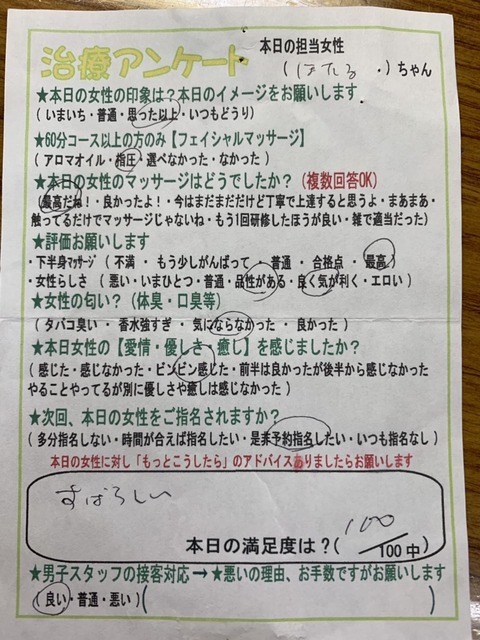 治療アンケート
本日の担当女性
(ほたる・)ちゃん
★本日の女性の印象は？本日のイメージをお願いします
(いまいち・普通・思った以上・いつもどうり)
★60分コース以上の方のみ【フェイシャルマッサージ】
(アロマオイル・指圧・選べなかった・なかった)
★本日の女性のマッサージはどうでしたか？(複数回答OK)
(最高だね！・良かったよ！・今はまだまだだけど丁寧で上達すると思うよ・まあまあ・
触ってるだけでマッサージじゃないね・もう1回研修したほうが良い・雑で適当だった)
★評価お願いします
・下半身マッサージ(不満・もう少しがんばって・普通・合格点・最高)
・女性らしさ(悪い・いまひとつ・普通・品性がある・良く気が利く・エロい)
★女性の匂い？(体臭・口臭等)
(タバコ臭い・香水強すぎ・気にならなかった・良かった)
★本日女性の【愛情・優しさ・癒し】を感じましたか？
(感じた・感じなかった・ビンビン感じた・前半は良かったが後半から感じなかった
やることやってるが別に優しさや癒しは感じなかった)
★次回、本日の女性をご指名されますか？
(多分指名しない・時間が合えば指名したい・是非予約指名したい・いつも指名なし)
本日の女性に対し「もっとこうしたら」のアドバイスありましたらお願いします
すばらしい
本日の満足度は？(100/100中)
★男子スタッフの接客対応→★悪いの理由、お手数ですがお願いします
(良い・普通・悪い)( )